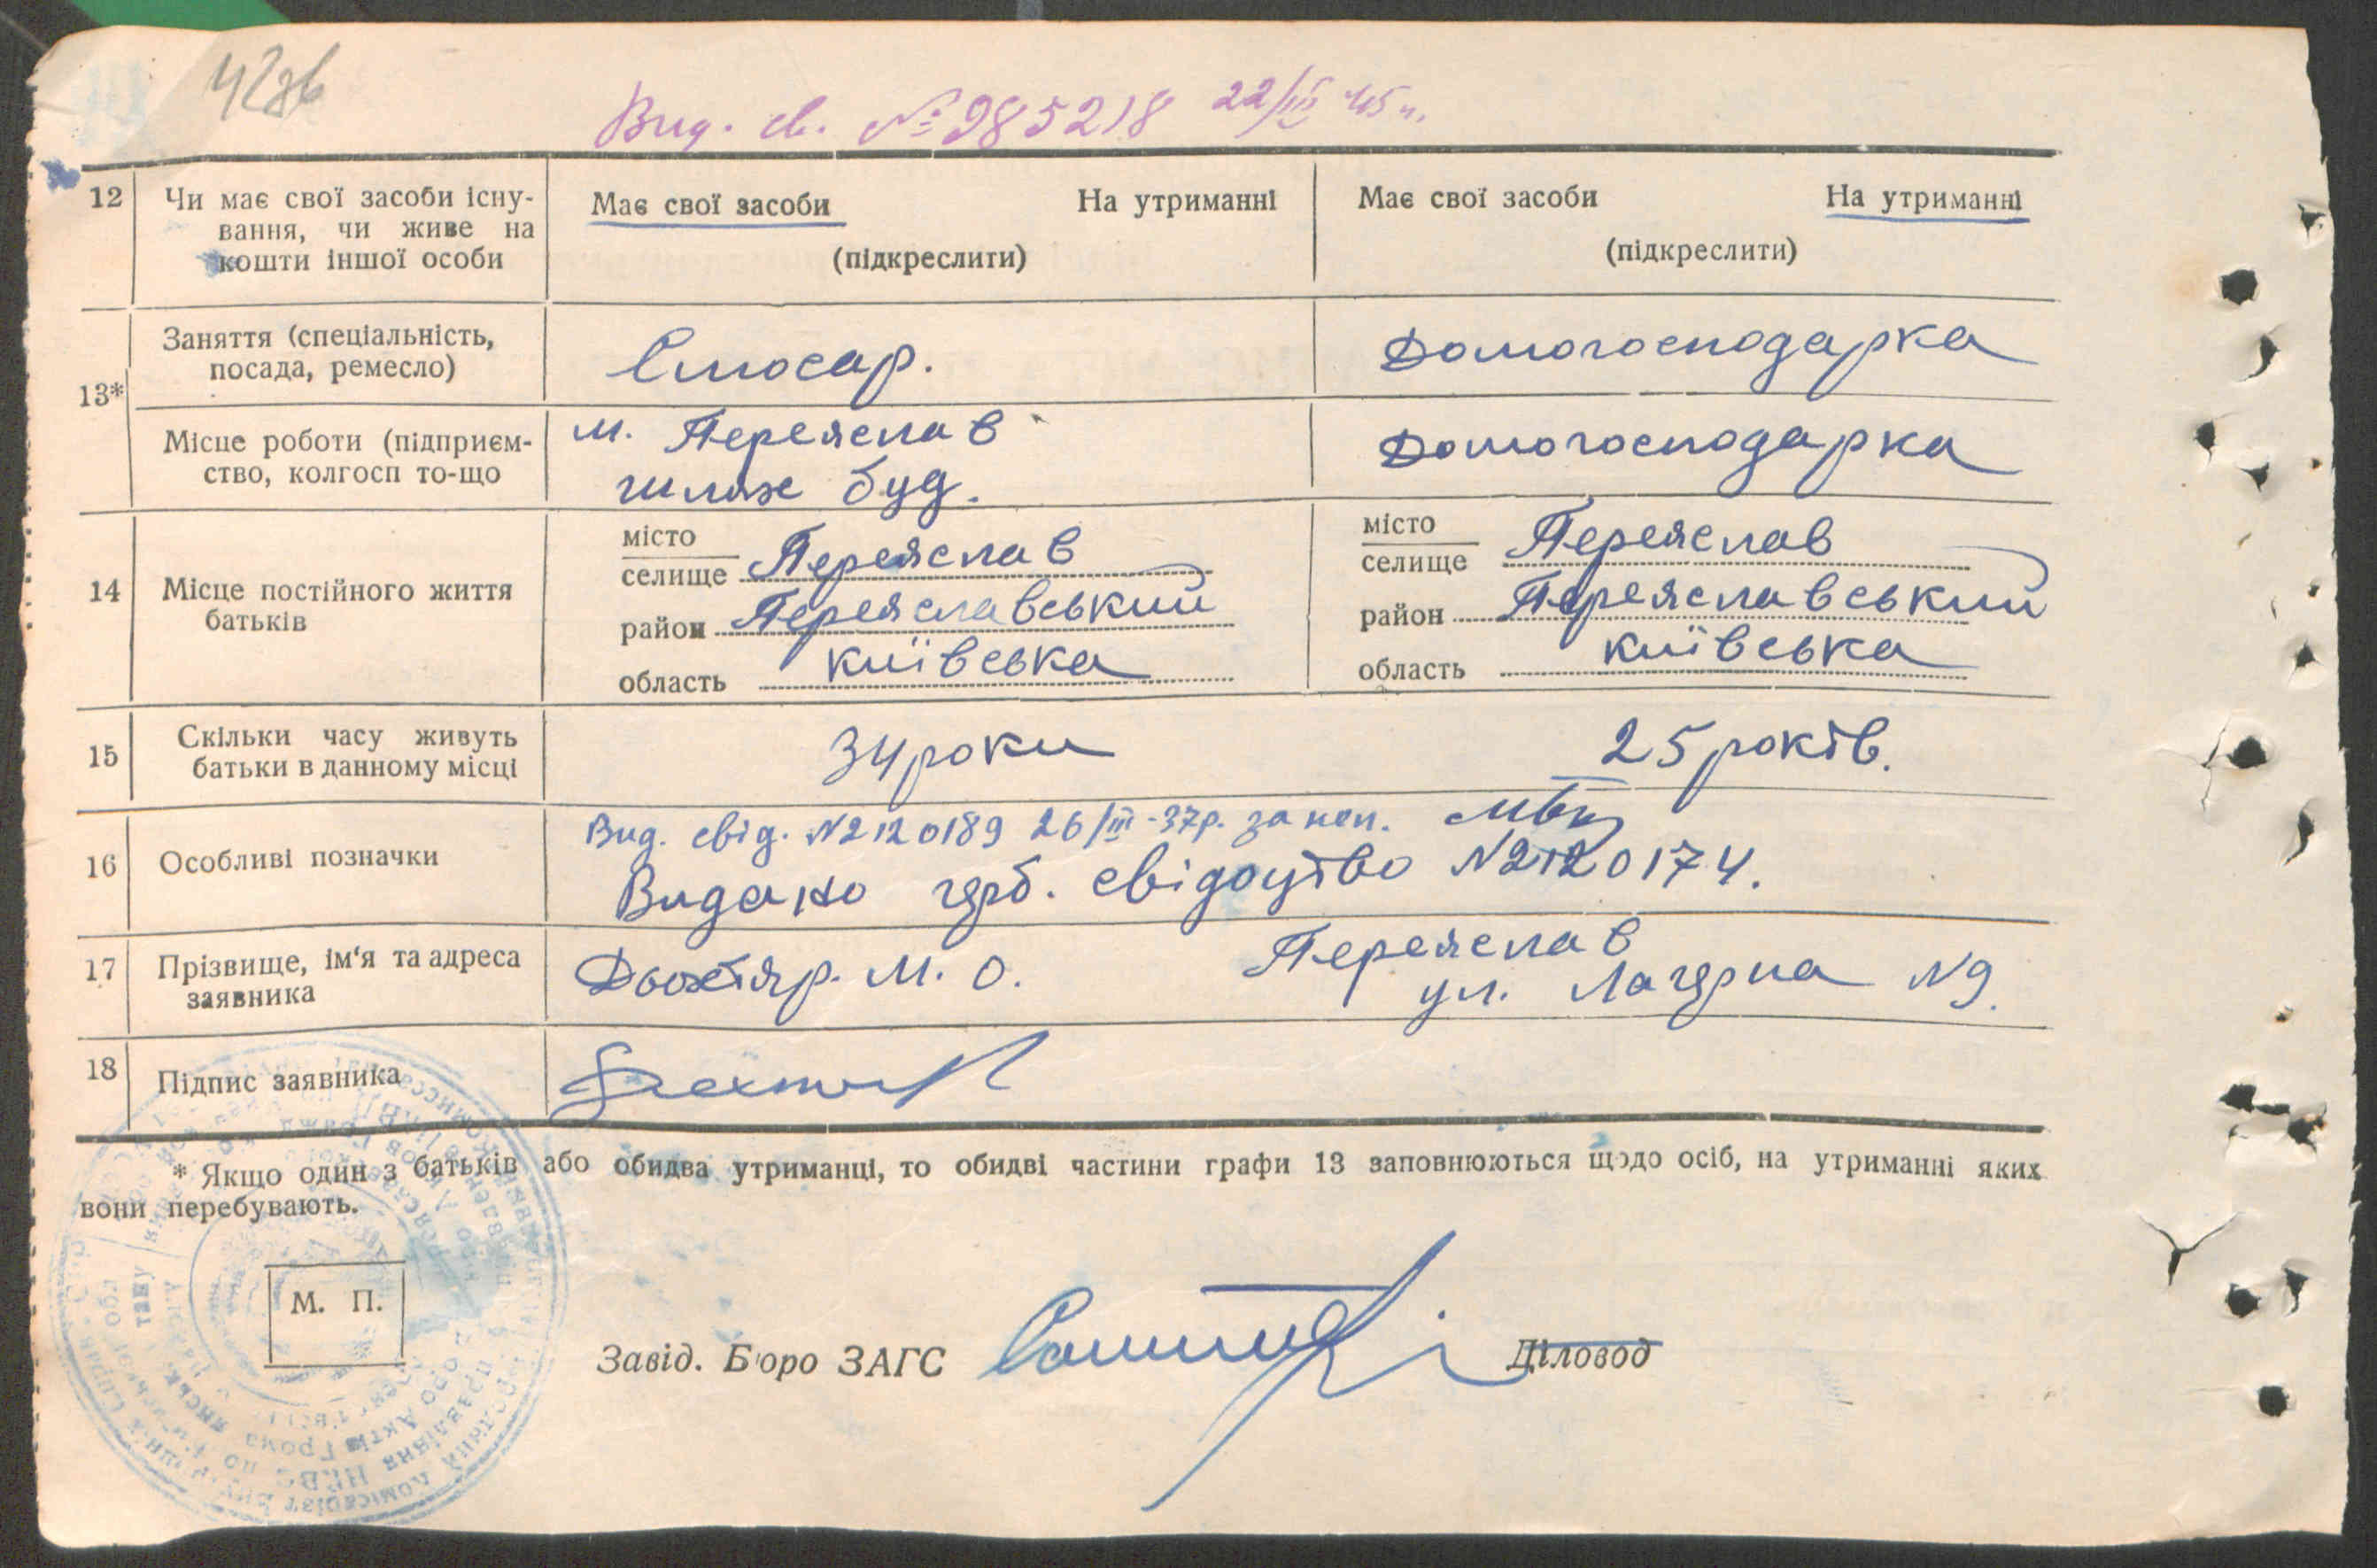 42зв
Вид. св. № 985218 22/III 45 р.
12 Чи має свої засоби існу-
вання, чи живе на
кошти іншої особи
Має свої засоби На утриманні
(підкреслити)
Має свої засоби На утриманні
(підкреслити)
13*
Заняття (спеціальність,
посада, ремесло)
Слюсар.
Домогосподарка
Місце роботи (підприєм-
ство, колгосп то-що
м. Переяслав
шлях буд.
Домогосподарка
14 Місце постійного життя
батьків
місто
селище Переяслав
район Переяславський
область київська
місто
селище Переяслав
район Переяславський
область київська
15 Скільки часу живуть
батьки в данному місці
34 роки
25 років.
16 Особливі позначки
Вид. свід. N2120189 26/III-37р.
Видано герб. свідоцтво N2120174.
17 Прізвище, ім'я та адреса
заявника
Дьохтяр. М. О. Переяслав
ул. Лагерна N9.
18 Підпис заявника
* Якщо один з батьків або обидва утриманці, то обидві частини графи 13 заповнюються щодо осіб, на утриманні яких
вони перебувають.
М. П.
Завід. Бюро ЗАГС
Діловод